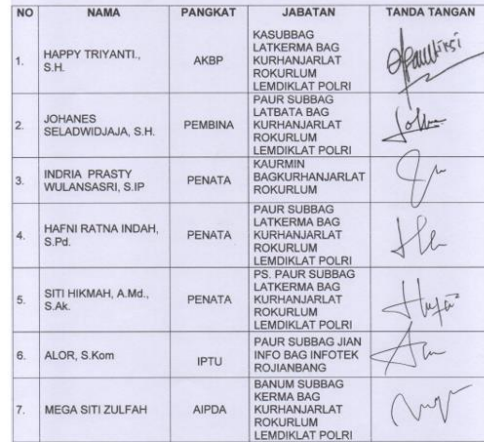 NO NAMA PANGKAT JABATAN TANDA TANGAN
1. HAPPY TRIYANTI., S.H. AKBP KASUBBAG
LATKERMA BAG
KURHANJARLAT
ROKURLUM
LEMDIKLAT POLRI
2. JOHANES
SELADWIDJAJA, S.H. PEMBINA PAUR SUBBAG
LATBATA BAG
KURHANJARLAT
ROKURLUM
LEMDIKLAT POLRI
3. INDRIA PRASTY
WULANSASRI, S.IP PENATA KAURMIN
BAGKURHANJARLAT
ROKURLUM
4. HAFNI RATNA INDAH,
S.Pd. PENATA PAUR SUBBAG
LATKERMA BAG
KURHANJARLAT
ROKURLUM
LEMDIKLAT POLRI
5. SITI HIKMAH, A.Md.,
S.Ak. PENATA PS. PAUR SUBBAG
LATKERMA BAG
KURHANJARLAT
ROKURLUM
LEMDIKLAT POLRI
6. ALOR, S.Kom IPTU PAUR SUBBAG JIAN
INFO BAG INFOTEK
ROJIANBANG
7. MEGA SITI ZULFAH AIPDA BANUM SUBBAG
KERMA BAG
KURHANJARLAT
ROKURLUM
LEMDIKLAT POLRI